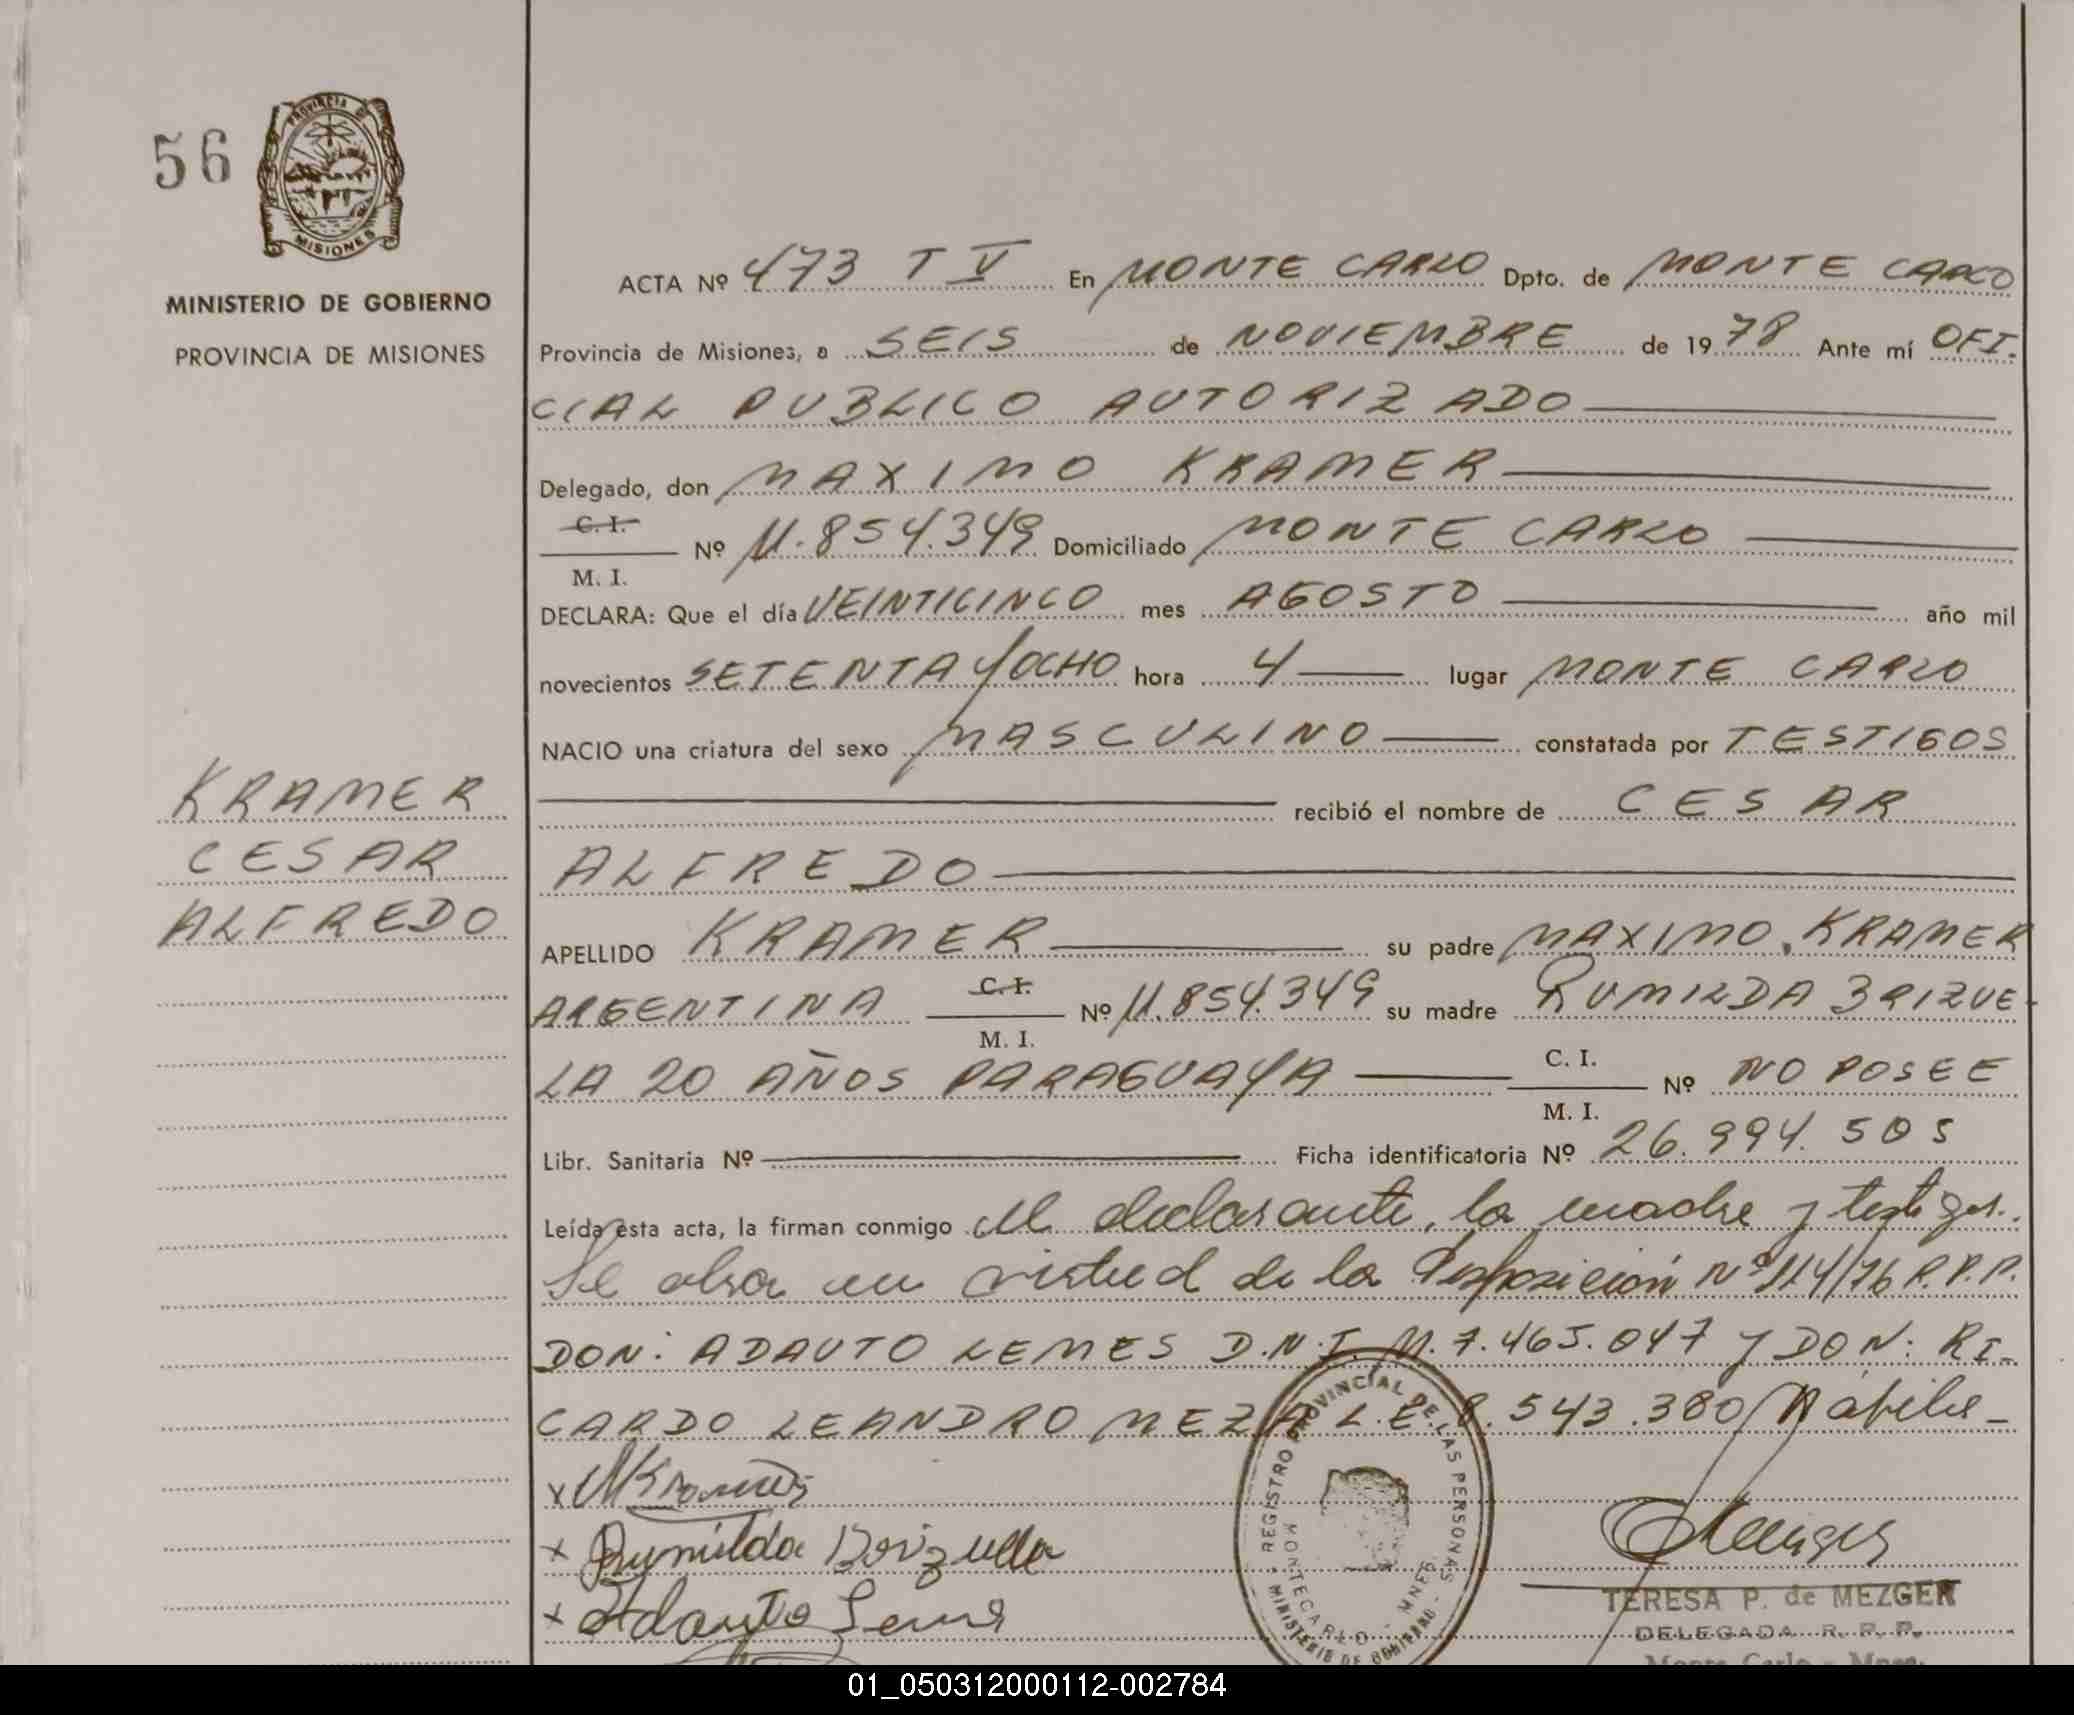 56
PROVINCIA DE
MISIONES
MINISTERIO DE GOBIERNO
PROVINCIA DE MISIONES
KRAMER
CESAR
ALFREDO
ACTA Nº 473 T V En MONTE CARLO Dpto. de MONTE CARLO
Provincia de Misiones, a SEIS de NOVIEMBRE de 1978 Ante mí OFI-
CIAL PUBLICO AUTORIZADO
Delegado, don MAXIMO KRAMER
C. I.
Nº M. 854.349 Domiciliado MONTE CARLO
M. I.
DECLARA: Que el día VEINTICINCO mes AGOSTO año mil
novecientos SETENTA Y OCHO hora 4 lugar MONTE CARLO
NACIO una criatura del sexo MASCULINO constatada por TESTIGOS
recibió el nombre de CESAR
ALFREDO
APELLIDO KRAMER su padre MAXIMO KRAMER
ARGENTINA C. I. Nº 11.854.349 su madre RUMILDA BRIZUE-
M. I.
LA 20 AÑOS PARAGUAYA C. I. Nº NO POSEE
M. I.
Libr. Sanitaria Nº Ficha identificatoria Nº 26.994.505
Leída esta acta, la firman conmigo el declarante, la madre y testigos.
Se labra en virtud de la Disposición Nº 114/76 R.P.P.
DON: ADAUTO LEMES D.N.I. M. 7.465.047 y DON: RI-
CARDO LEANDRO MEZA L.E. 8.543.380 Hábiles-
x MKramer
x Rumilda Brizuela
x Adauto Leme
REGISTRO PROVINCIAL DE LAS PERSONAS
MONTECARLO - MNES.
MINISTERIO DE GOBIERNO
TERESA P. de MEZGER
DELEGADA R. P. P.
Monte Carlo - Mnes.
01_050312000112-002784